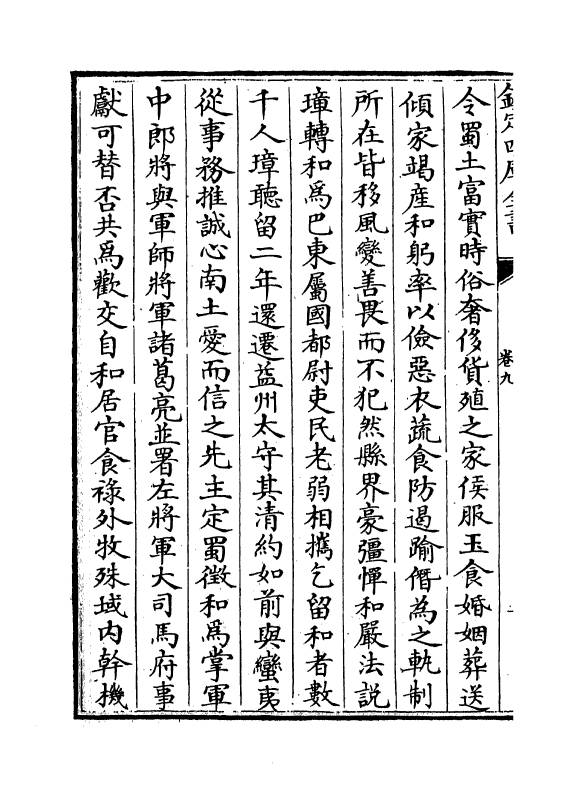 欽定四庫全書
卷九
令蜀土富實時俗奢侈貨殖之家侯服玉食婚姻葬送
傾家竭産和躬率以儉惡衣蔬食防遏踰僭為之軌制
所在皆移風變善畏而不犯然縣界豪彊憚和嚴法説
璋轉和為巴東屬國都尉吏民老弱相攜乞留和者數
千人璋聽留二年還遷益州太守其清約如前與蠻夷
從事務推誠心南土愛而信之先主定蜀徵和為掌軍
中郎將與軍師將軍諸葛亮並署左將軍大司馬府事
獻可替否共為歡交自和居官食祿外牧殊域内幹機